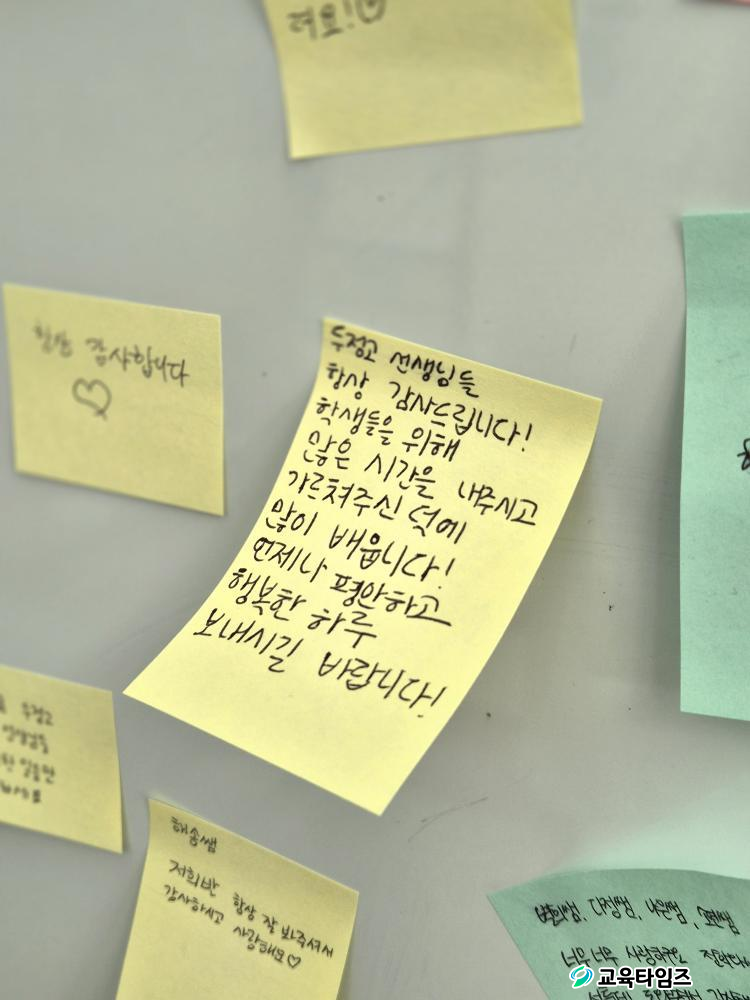 려요!
항상 감사합니다
두정고 선생님들
항상 감사드립니다!
학생들을 위해
많은 시간을 내주시고
가르쳐주신 덕에
많이 배웁니다!
언제나 평안하고
행복한 하루
보내시길 바랍니다!
두정고
해송쌤
저희반 항상 잘 봐주셔서
감사하시고 사랑해요♡
다정쌤, 나은쌤,
너무너무
교육타임즈